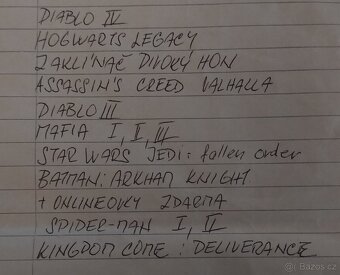 DIABLO IV
HOGWARTS LEGACY
ZAKLÍNAČ DIVOKÝ HON
ASSASSIN'S CREED VALHALLA
DIABLO III
MAFIA I, II, III
STAR WARS JEDI: fallen order
BATMAN: ARKHAM KNIGHT
+ ONLINEOVKY ZDARMA
SPIDER-MAN I, II
KINGDOM COME: DELIVERANCE
Bazos.cz